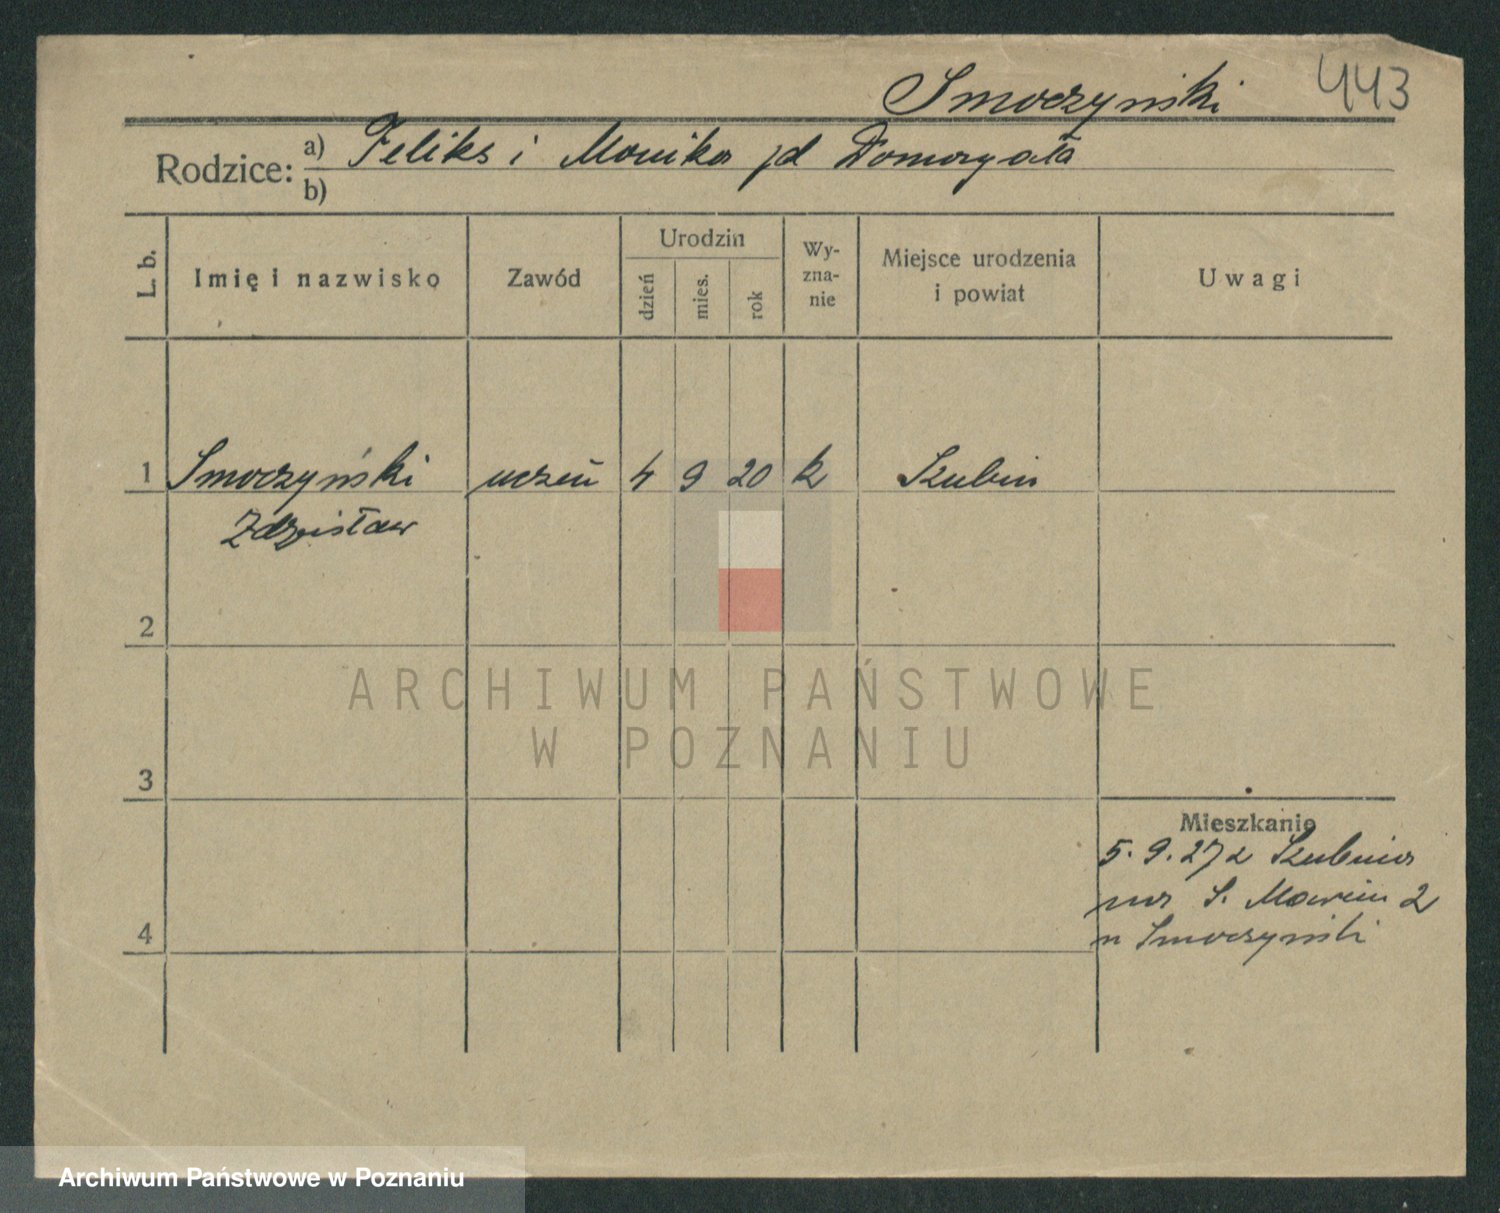 Smoczynski 443
Rodzice: a) Feliks i Monika zd Domozgała
b)
L. b. Imię i nazwisko Zawód Urodzin dzień mies. rok Wy-zna-nie Miejsce urodzenia i powiat Uwagi
1 Smoczyński uczeń 4 9 20 k Szubin
Zdzisław
2
3
Mieszkanie
5.9.27 z Szubina
na S. Marcin 2
4
n Smoczyński
ARCHIWUM PAŃSTWOWE
W POZNANIU
Archiwum Państwowe w Poznaniu